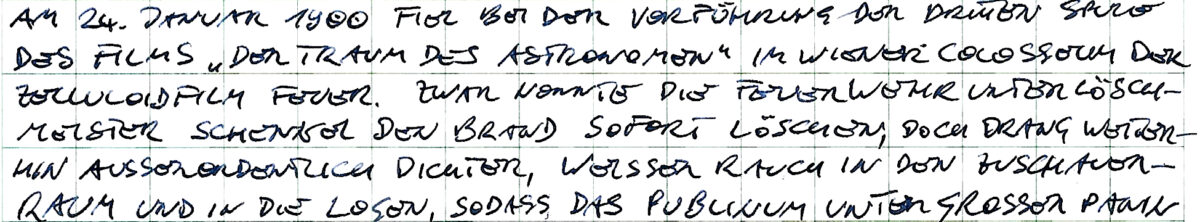 AM 24. JANUAR 1900 FIEL BEI DER VORFÜHRUNG DER DRITTEN SPULE
DES FILMS „DER TRAUM DES ASTRONOMEN“ IM WIENER COLOSSEUM DER
ZELLULOIDFILM FEUER. ZWAR KONNTE DIE FEUERWEHR UNTER LÖSCH-
MEISTER SCHENKEL DEN BRAND SOFORT LÖSCHEN, DOCH DRANG WEITER-
HIN AUSSERORDENTLICH DICHTER, WEISSER RAUCH IN DEN ZUSCHAUER-
RAUM UND IN DIE LOGEN, SODASS DAS PUBLIKUM UNTER GROSSER PANIK